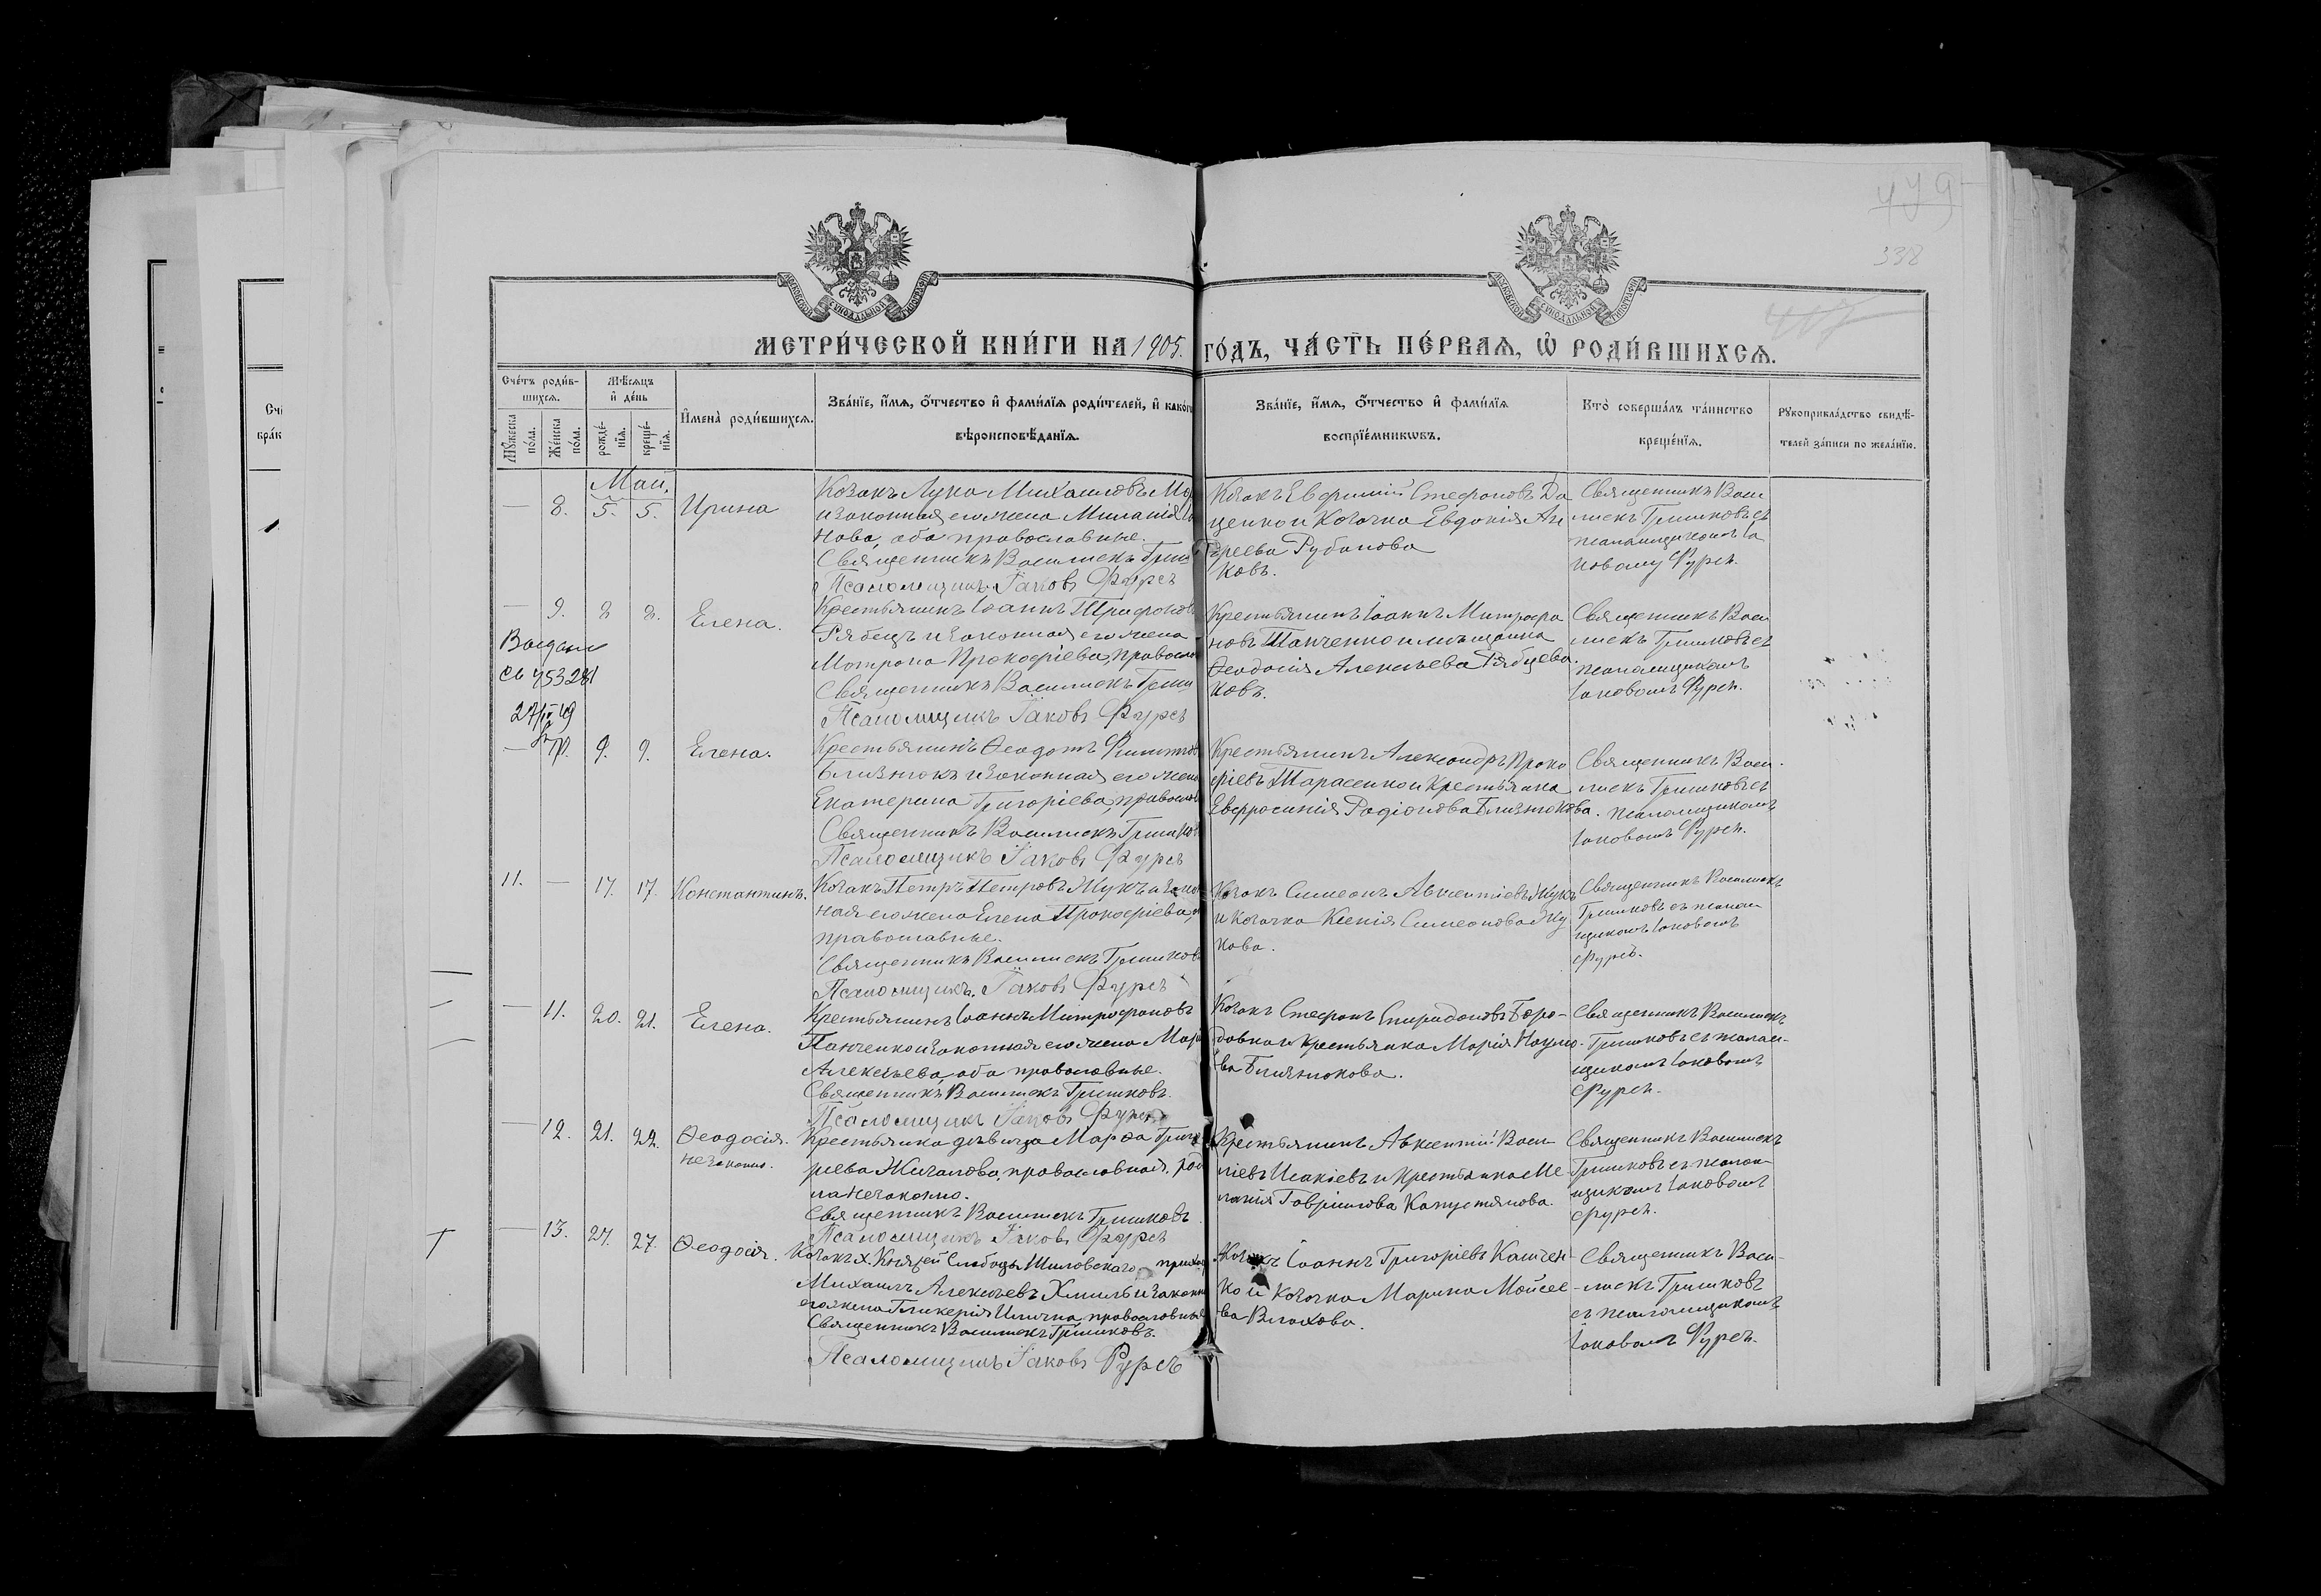 479
332
407
МОСКОВСКОЙ СѴНОДАЛЬНОЙ ТИПОГРАФІИ
МОСКОВСКОЙ СѴНОДАЛЬНОЙ ТИПОГРАФІИ
МЕТРИ́ЧЕСКОЙ КНИ́ГИ НА 1905. ГО́ДЪ, ЧА́СТЬ ПЕ́РВАЯ, Ѡ҆ РОДИ́ВШИХСЯ.
Сче́тъ роди́в-
шихся.
Мѣ́сяцъ
и҆ де́нь
Мꙋ́жеска по́ла.
Же́нска по́ла.
рожде́-
нїя.
креще́-
нїя.
И҆мена̀ роди́вшихся.
Зва́нїе, и҆́мя, ѻ҆́тчество и҆ фами́лїя роди́телей, и҆ како́гѡ
вѣроисповѣ́данїя.
Зва́нїе, и҆́мя, ѻ҆́тчество и҆ фами́лїя
воспрїе́мникѡвъ.
Кто̀ соверша́лъ та́инство
креще́нїя.
Рꙋкоприкла́дство свидѣ́-
телей за́писи по жела́нїю.
Май.
— 8. 5. 5. Ирина
Козакъ Лука Михаиловъ
и законная его жена Миланія
нова, оба православные.
Священникъ Василискъ Гриш
Псаломщикъ Іаковъ Фурсъ
Козакъ Евфимій Стефановъ Да
ценко и Козачка Евдокія Ан
дреева Рубанова
ковъ.
Священникъ Васи
лискъ Гришковъ съ
псаломщикомъ Іа
ковому Фурсъ.
— 9. 8 8. Елена.
Выдано
св 453281
27/IV 49
Крестьянинъ Іоаннъ Трифонов
Рябецъ и законная его жена
Мотрона Прокофіева, правосл
Священникъ Василискъ Гриш
Псаломщикъ Іаковъ Фурсъ
Крестьянинъ Іоаннъ Митрофа
новъ Панченко и мѣщанка
Ѳеодосія Алексѣева Рябцева.
ковъ.
Священникъ Васи
лискъ Гришковъ съ
псаломщикомъ
Іаковомъ Фурсъ.
— 10. 9. 9. Елена.
Крестьянинъ Ѳеодотъ Филиппов
Близнюкъ и законная его жена
Екатерина Григоріева, правосл
Священникъ Василискъ Гришков
Псаломщикъ Іаковъ Фурсъ
Крестьянинъ Александръ Проко
фіевъ Тарасенко и крестьянка
Евфросинія Родіонова Близнюкова.
Священникъ Васи-
лискъ Гришковъ съ
псаломщикомъ
Іаковомъ Фурсъ.
11. — 17. 17. Константинъ.
Козакъ Петръ Петровъ Жукъ и закон
ная его жена Елена Прокофіева,
православные.
Священникъ Василискъ Гришков
Псаломщикъ Іаковъ Фурсъ
Козакъ Симеонъ Авксентіевъ Жукъ
и козачка Ксенія Симеонова Жу
кова.
Священникъ Василискъ
Гришковъ съ псалом
щикомъ Іаковомъ
Фурсъ.
— 11. 20. 21. Елена.
Крестьянинъ Іоаннъ Митрофановъ
Панченко и законная его жена Мар
Алексѣева, оба православные.
Священникъ Василискъ Гришковъ.
Псаломщикъ Іаковъ Фурсъ
Козакъ Стефанъ Спиридоновъ Боро-
давка и крестьянка Марія Наумо-
ва Близнюкова.
Священникъ Василискъ
Гришковъ съ псалом-
щикомъ Іаковомъ
Фурсъ.
— 12. 21. 22. Ѳеодосія.
незаконно.
Крестьянка дѣвица Марѳа Григо
рьева Жигалова, православная. род
ила незаконно.
Священникъ Василискъ Гришковъ
Псаломщикъ Іаковъ Фурсъ
Крестьянинъ Авксентій Васи-
ліевъ Исакіевъ и крестьянка Ме-
ланія Гавріилова Капустянова.
Священникъ Василискъ
Гришковъ съ псалом-
щикомъ Іаковомъ
Фурсъ.
— 13. 27. 27. Ѳеодосія.
Козакъ х. Князей Слободы Шиловскаго прихо
Михаилъ Алексѣевъ Хмиль и законн
его жена Гликерія Ильина, православны
Священникъ Василискъ Гришковъ.
Псаломщикъ Іаковъ Фурсъ
Козакъ Іоаннъ Григоріевъ
ко и козачка Марина Мойсее-
ва Влахова.
Священникъ Васи-
лискъ Гришковъ
съ псаломщикомъ
Іаковомъ Фурсъ.